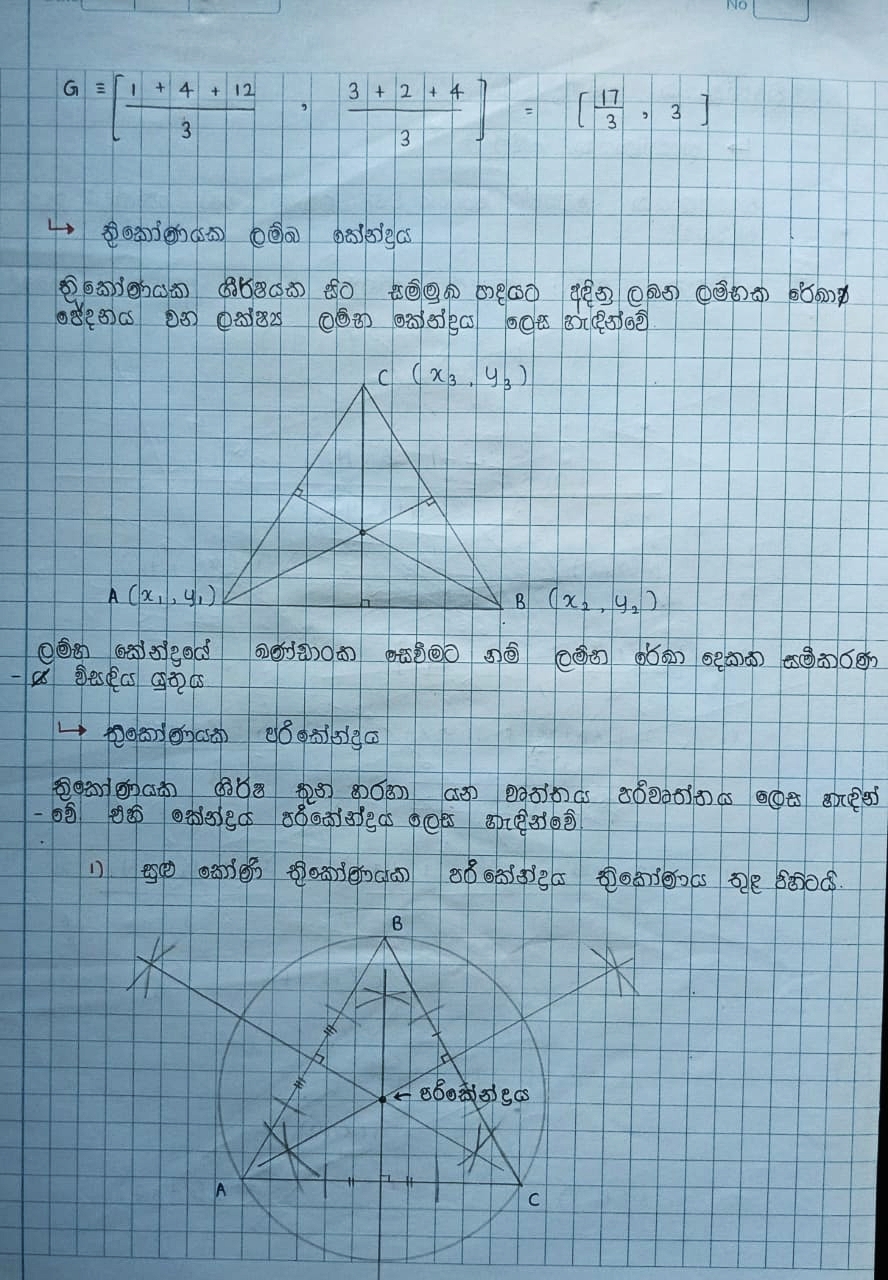 No
G ≡ [ (1 + 4 + 12)/3 , (3 + 2 + 4)/3 ] = [ 17/3 , 3 ]
↳ ත්‍රිකෝණයක ලම්බ කේන්ද්‍රය
ත්‍රිකෝණයක ශීර්ෂයක සිට සම්මුඛ පාදයට අඳිනු ලබන ලම්භක රේඛා
ඡේදනය වන ලක්ෂ්‍ය ලම්භ කේන්ද්‍රය ලෙස හැඳින්වේ
C (x₃, y₃)
A (x₁, y₁)
B (x₂, y₂)
ලම්භ කේන්ද්‍රයේ ඛණ්ඩාංක සෙවීමට නම් ලම්භ රේඛා දෙකක සමීකරණ
- විසඳිය යුතුය
↳ ත්‍රිකෝණයක පරිකේන්ද්‍රය
ත්‍රිකෝණයක ශීර්ෂ තුන හරහා යන වෘත්තය පරිවෘත්තය ලෙස හැඳින්
- වේ එහි කේන්ද්‍රය පරිකේන්ද්‍රය ලෙස හැඳින්වේ.
1) සුළු කෝණී ත්‍රිකෝණයක පරිකේන්ද්‍රය ත්‍රිකෝණය තුළ පිහිටයි.
B
← පරිකේන්ද්‍රය
A
C